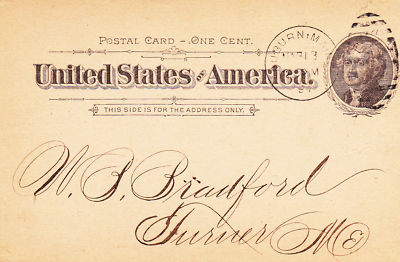 POSTAL CARD – ONE CENT.
United States of America.
THIS SIDE IS FOR THE ADDRESS ONLY.
W. B. Bradford
Turner Me